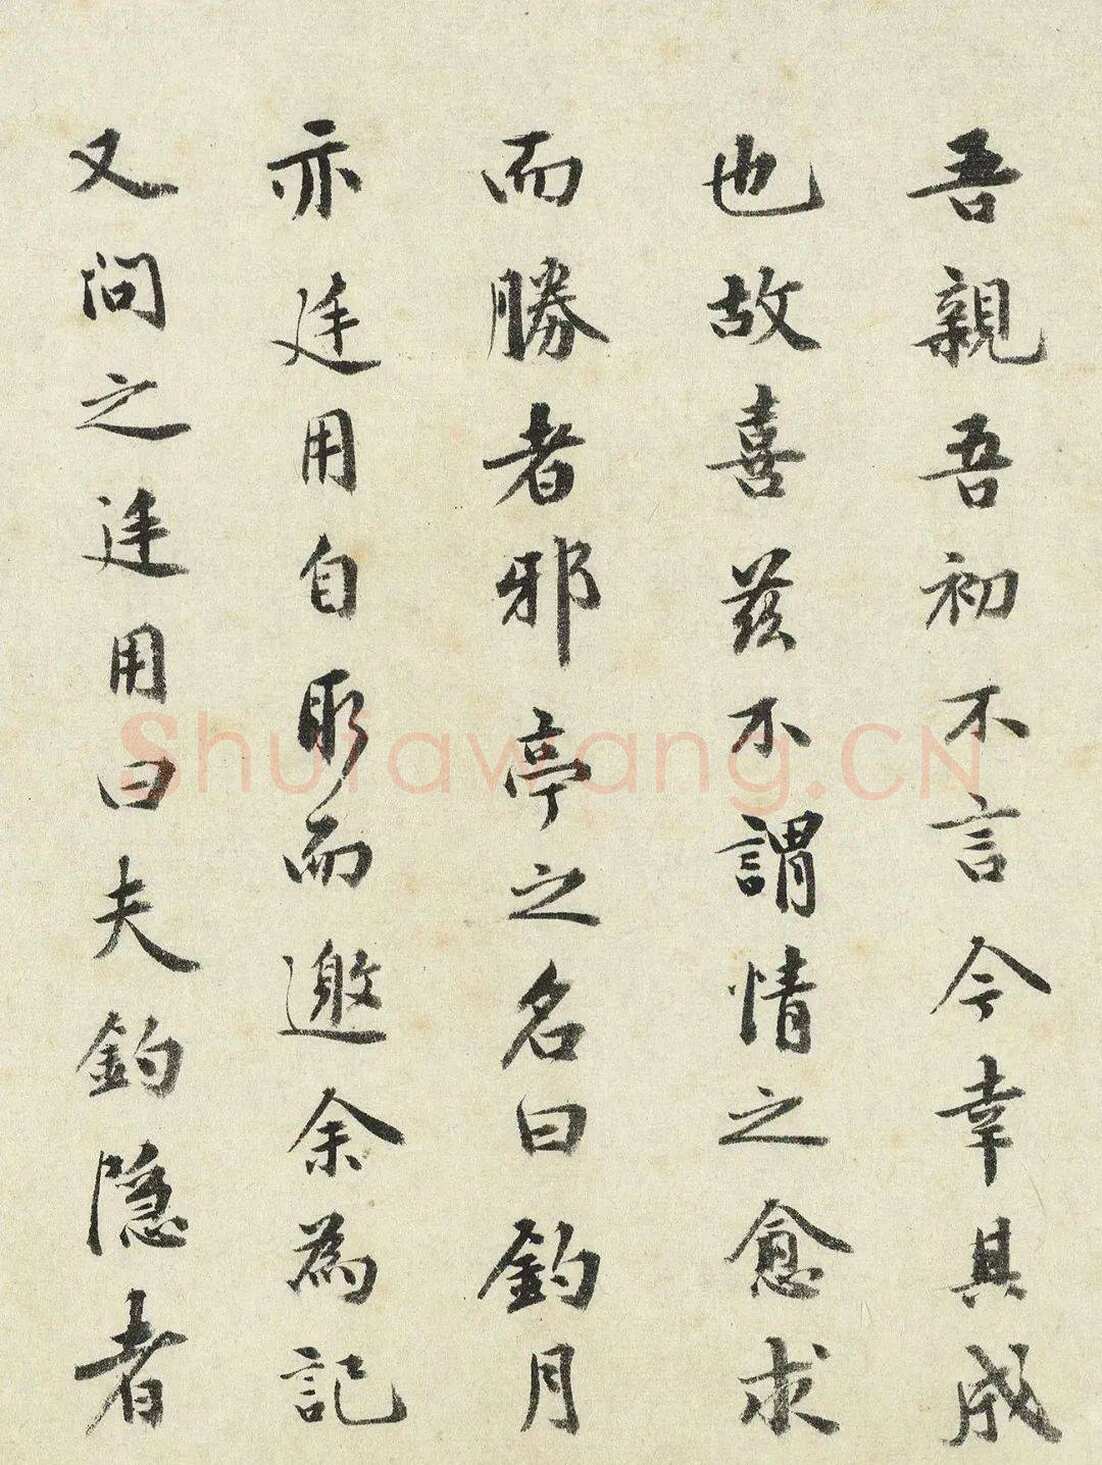 吾親吾初不言今幸其成
也故喜茲不謂情之愈求
而勝者邪亭之名曰釣月
亦廷用自取而邀余為記
又問之廷用曰夫釣隱者
Shufawang.CN